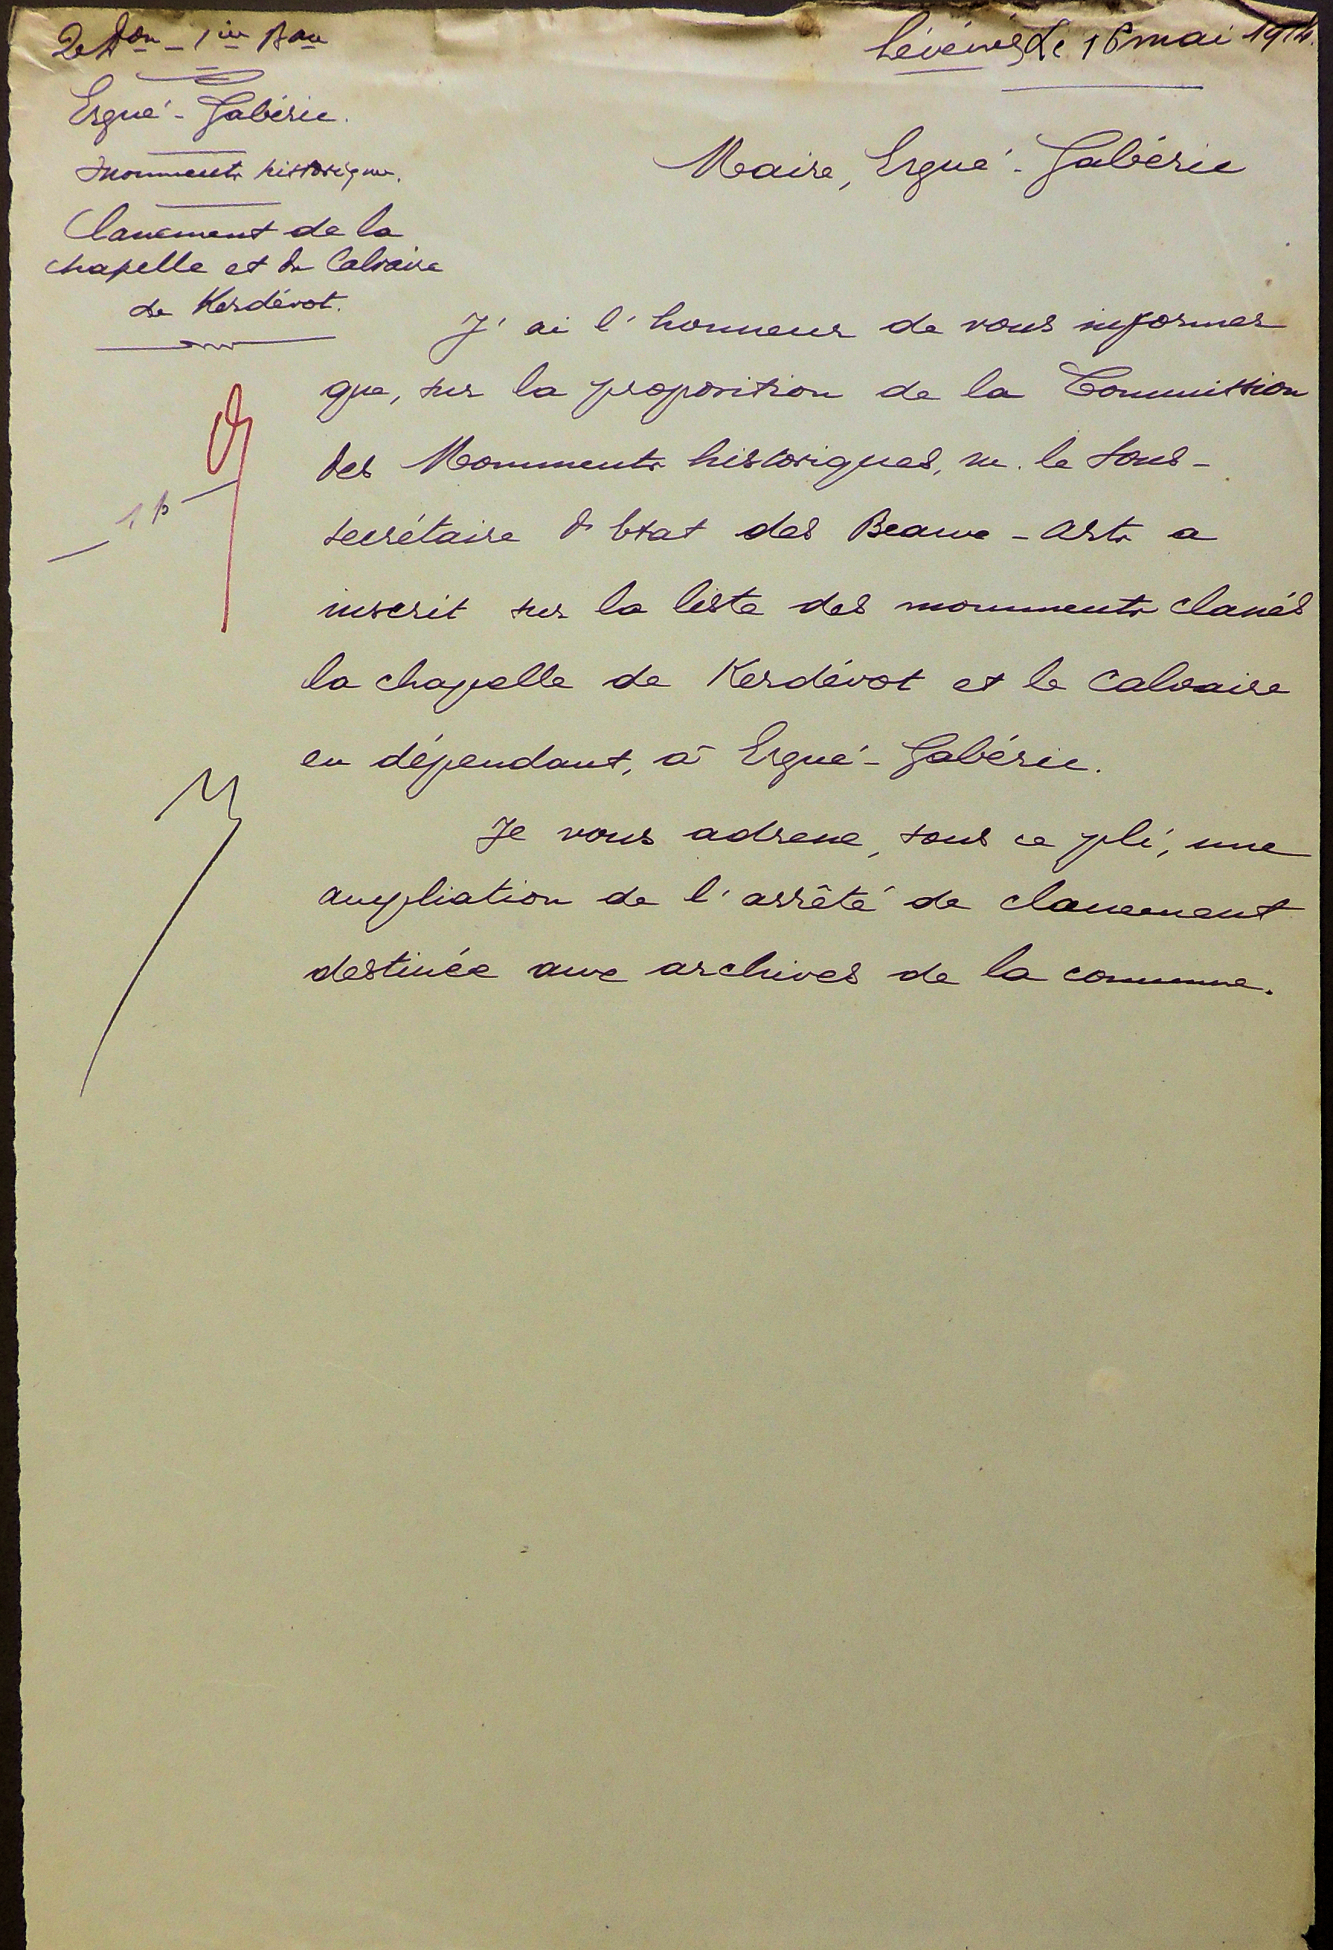 2e Don - 1er Bau
Le 16 mai 1914.
Ergué-Gabéric.
Monuments historiques.
Classement de la
chapelle et du Calvaire
de Kerdévot.
Maire, Ergué-Gabéric
J'ai l'honneur de vous informer
que, sur la proposition de la Commission
des Monuments historiques, M. le Sous-
secrétaire d'Etat des Beaux-Arts a
inscrit sur la liste des monuments classés
la chapelle de Kerdévot et le Calvaire
en dépendant, à Ergué-Gabéric.
Je vous adresse, sous ce pli, une
ampliation de l'arrêté de classement
destinée aux archives de la commune.
1 p